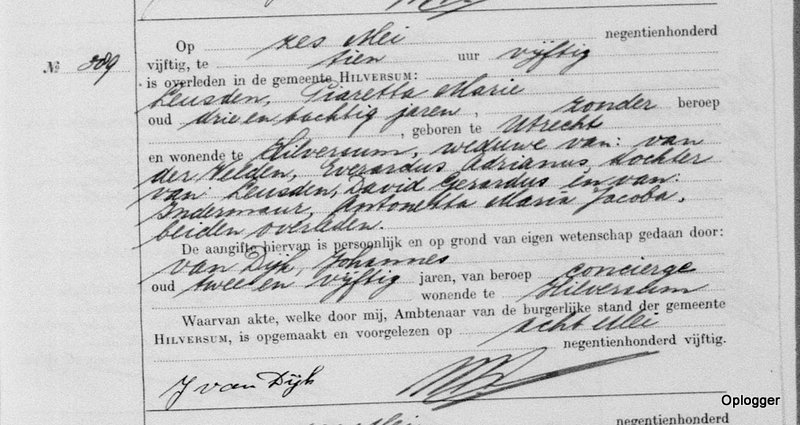 Op zes Mei negentienhonderd
No 389 vijftig, te tien uur vijftig
is overleden in de gemeente HILVERSUM:
Leusden, Piaretta Marie
oud drie en tachtig jaren, zonder beroep
, geboren te Utrecht
en wonende te Hilversum, weduwe van: van
der Velden, Everardus Adrianus, dochter
van Leusden, David Gerardus en van:
Indermaur, Antonetta Maria Jacoba,
beiden overleden.
De aangifte hiervan is persoonlijk en op grond van eigen wetenschap gedaan door:
van Dijk, Johannes
oud twee en vijftig jaren, van beroep concierge
wonende te Hilversum
Waarvan akte, welke door mij, Ambtenaar van de burgerlijke stand der gemeente
HILVERSUM, is opgemaakt en voorgelezen op acht Mei
negentienhonderd vijftig.
J van Dijk
Oplogger
negentienhonderd